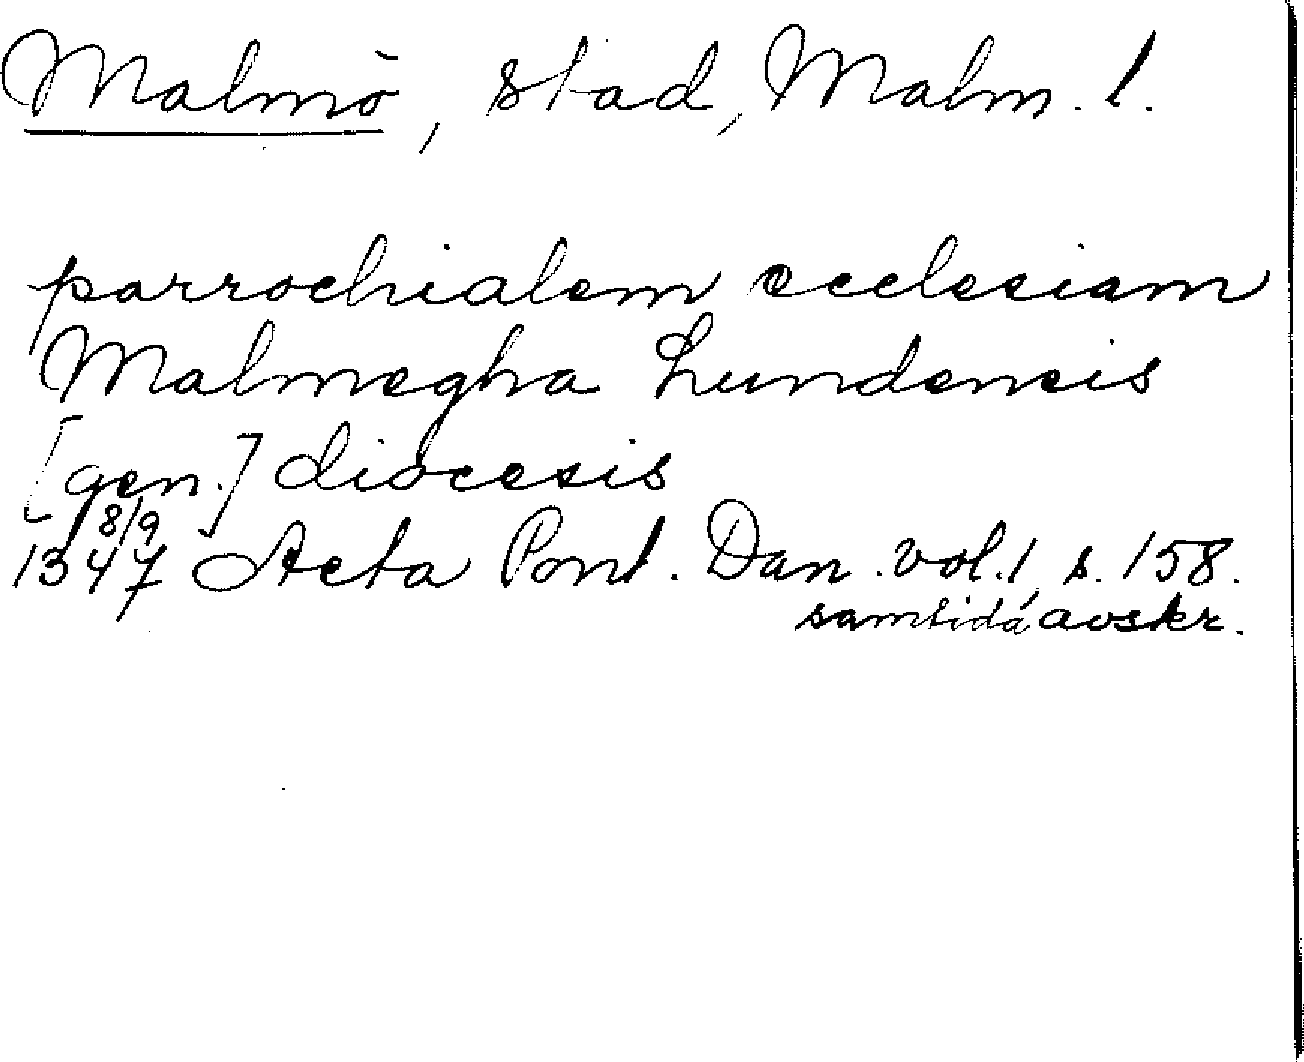 Malmö, stad, Malm. l.
parrochialem ecclesiam
Malmegha Lundensis
[gen.] diocesis
8/9
1347 Acta Pont. Dan. vol. 1, s. 158.
samtida avskr.